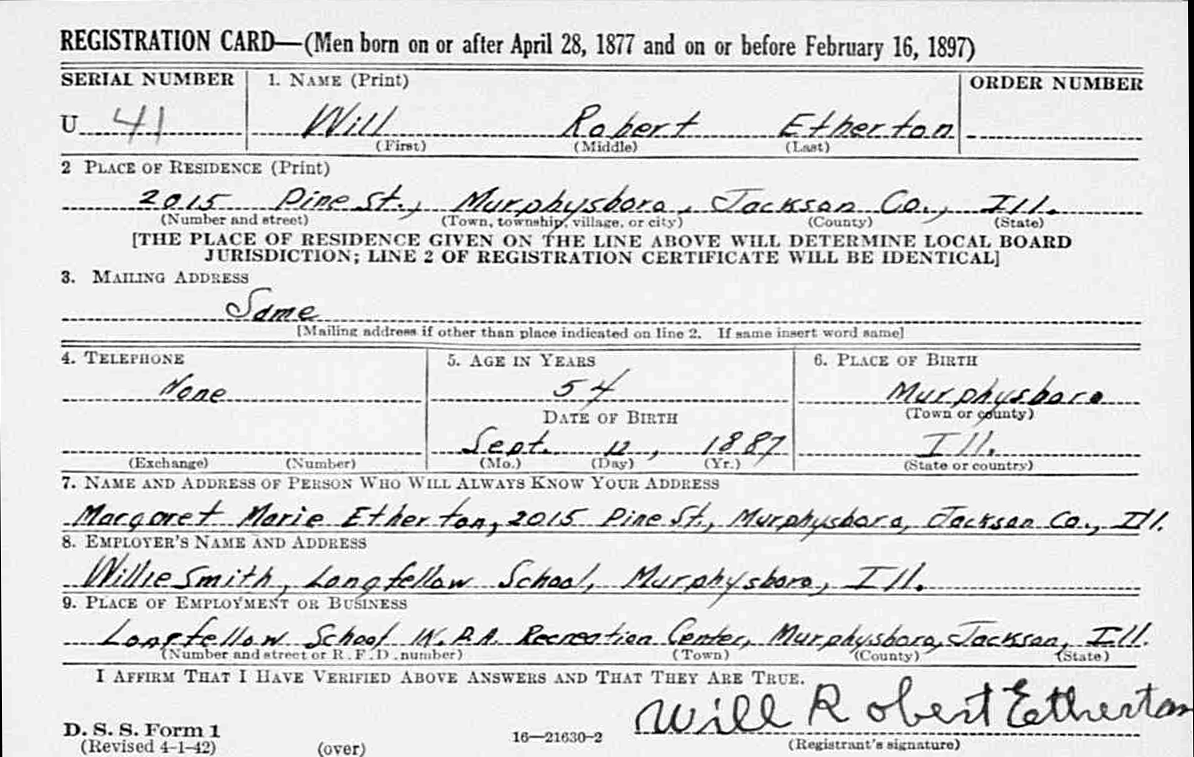 REGISTRATION CARD—(Men born on or after April 28, 1877 and on or before February 16, 1897)
SERIAL NUMBER 1. NAME (Print) ORDER NUMBER
U 41 Will Robert Etherton
(First) (Middle) (Last)
2 PLACE OF RESIDENCE (Print)
2015 Pine St., Murphysboro, Jackson Co., Ill.
(Number and street) (Town, township, village, or city) (County) (State)
[THE PLACE OF RESIDENCE GIVEN ON THE LINE ABOVE WILL DETERMINE LOCAL BOARD
JURISDICTION; LINE 2 OF REGISTRATION CERTIFICATE WILL BE IDENTICAL]
3. MAILING ADDRESS
Same
[Mailing address if other than place indicated on line 2. If same insert word same]
4. TELEPHONE 5. AGE IN YEARS 6. PLACE OF BIRTH
None 54 Murphysboro
DATE OF BIRTH (Town or county)
Sept. 12, 1887 Ill.
(Exchange) (Number) (Mo.) (Day) (Yr.) (State or country)
7. NAME AND ADDRESS OF PERSON WHO WILL ALWAYS KNOW YOUR ADDRESS
Margaret Marie Etherton, 2015 Pine St., Murphysboro, Jackson Co., Ill.
8. EMPLOYER'S NAME AND ADDRESS
Willie Smith, Longfellow School, Murphysboro, Ill.
9. PLACE OF EMPLOYMENT OR BUSINESS
Longfellow School W.P.A. Recreation Center, Murphysboro, Jackson, Ill.
(Number and street or R. F. D. number) (Town) (County) (State)
I AFFIRM THAT I HAVE VERIFIED ABOVE ANSWERS AND THAT THEY ARE TRUE.
Will Robert Etherton
D. S. S. Form 1
(Revised 4-1-42) (over) 16—21630-2 (Registrant's signature)